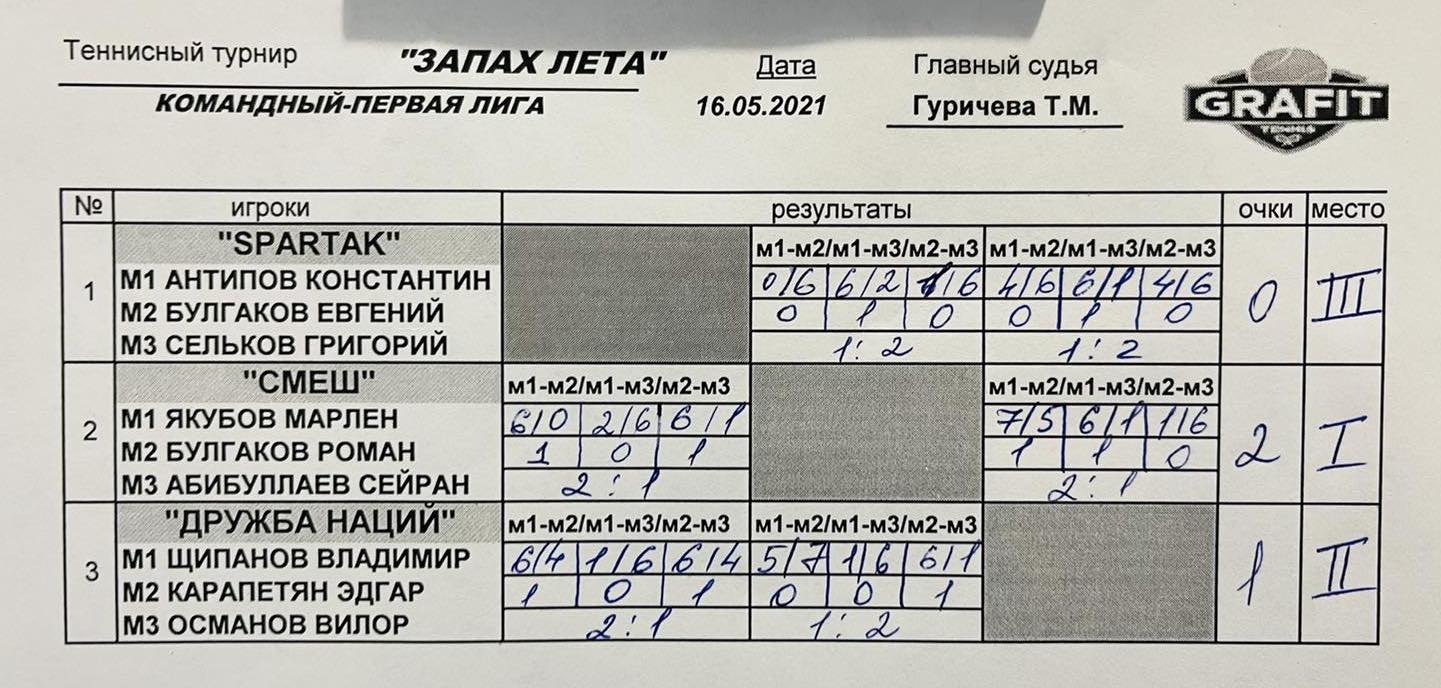 Теннисный турнир "ЗАПАХ ЛЕТА" Дата Главный судья
КОМАНДНЫЙ-ПЕРВАЯ ЛИГА 16.05.2021 Гуричева Т.М.
GRAFIT
TENNIS
№ игроки результаты очки место
"SPARTAK" м1-м2/м1-м3/м2-м3 м1-м2/м1-м3/м2-м3
1 М1 АНТИПОВ КОНСТАНТИН 0/6 6/2 1/6 4/6 6/1 4/6 0 III
М2 БУЛГАКОВ ЕВГЕНИЙ 0 1 0 0 1 0
М3 СЕЛЬКОВ ГРИГОРИЙ 1:2 1:2
"СМЕШ" м1-м2/м1-м3/м2-м3 м1-м2/м1-м3/м2-м3
2 М1 ЯКУБОВ МАРЛЕН 6/0 2/6 6/1 7/5 6/1 1/6 2 I
М2 БУЛГАКОВ РОМАН 1 0 1 1 1 0
М3 АБИБУЛЛАЕВ СЕЙРАН 2:1 2:1
"ДРУЖБА НАЦИЙ" м1-м2/м1-м3/м2-м3 м1-м2/м1-м3/м2-м3
3 М1 ЩИПАНОВ ВЛАДИМИР 6/4 1/6 6/4 5/7 1/6 6/1 1 II
М2 КАРАПЕТЯН ЭДГАР 1 0 1 0 0 1
М3 ОСМАНОВ ВИЛОР 2:1 1:2